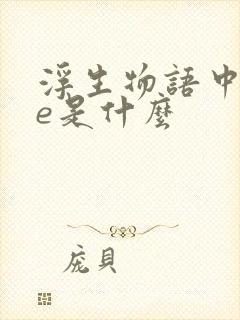 浮生物語中
e是什麼
庞貝